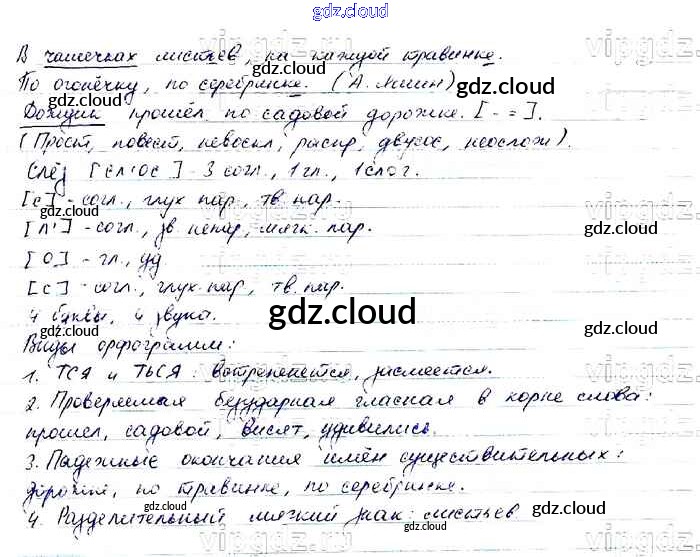 gdz.cloud
В чашечках листьев, на каждой травинке.
По огонёчку, по серебринке. (А. Яшин)
Дождик прошёл по садовой дорожке. [ - = ].
(Прост, повест, невоскл, распр, двусос, неослож).
Слёз [сл'ос] - 3 согл., 1 гл., 1 слог.
[с] - согл., глух пар, тв. пар.
[л'] - согл., зв. непар, мягк. пар.
[о] - гл., уд
[с] - согл., глух. пар, тв. пар.
4 буквы, 4 звука.
gdz.cloud
Виды орфограмм:
1. ТСЯ и ТЬСЯ: встрепенется, засмеется.
2. Проверяемая безударная гласная в корне слова:
прошел, садовой, висят, удивились.
3. Падежные окончания имён существительных:
дорожке, по травинке, по серебринке.
4. Разделительный мягкий знак: листьев